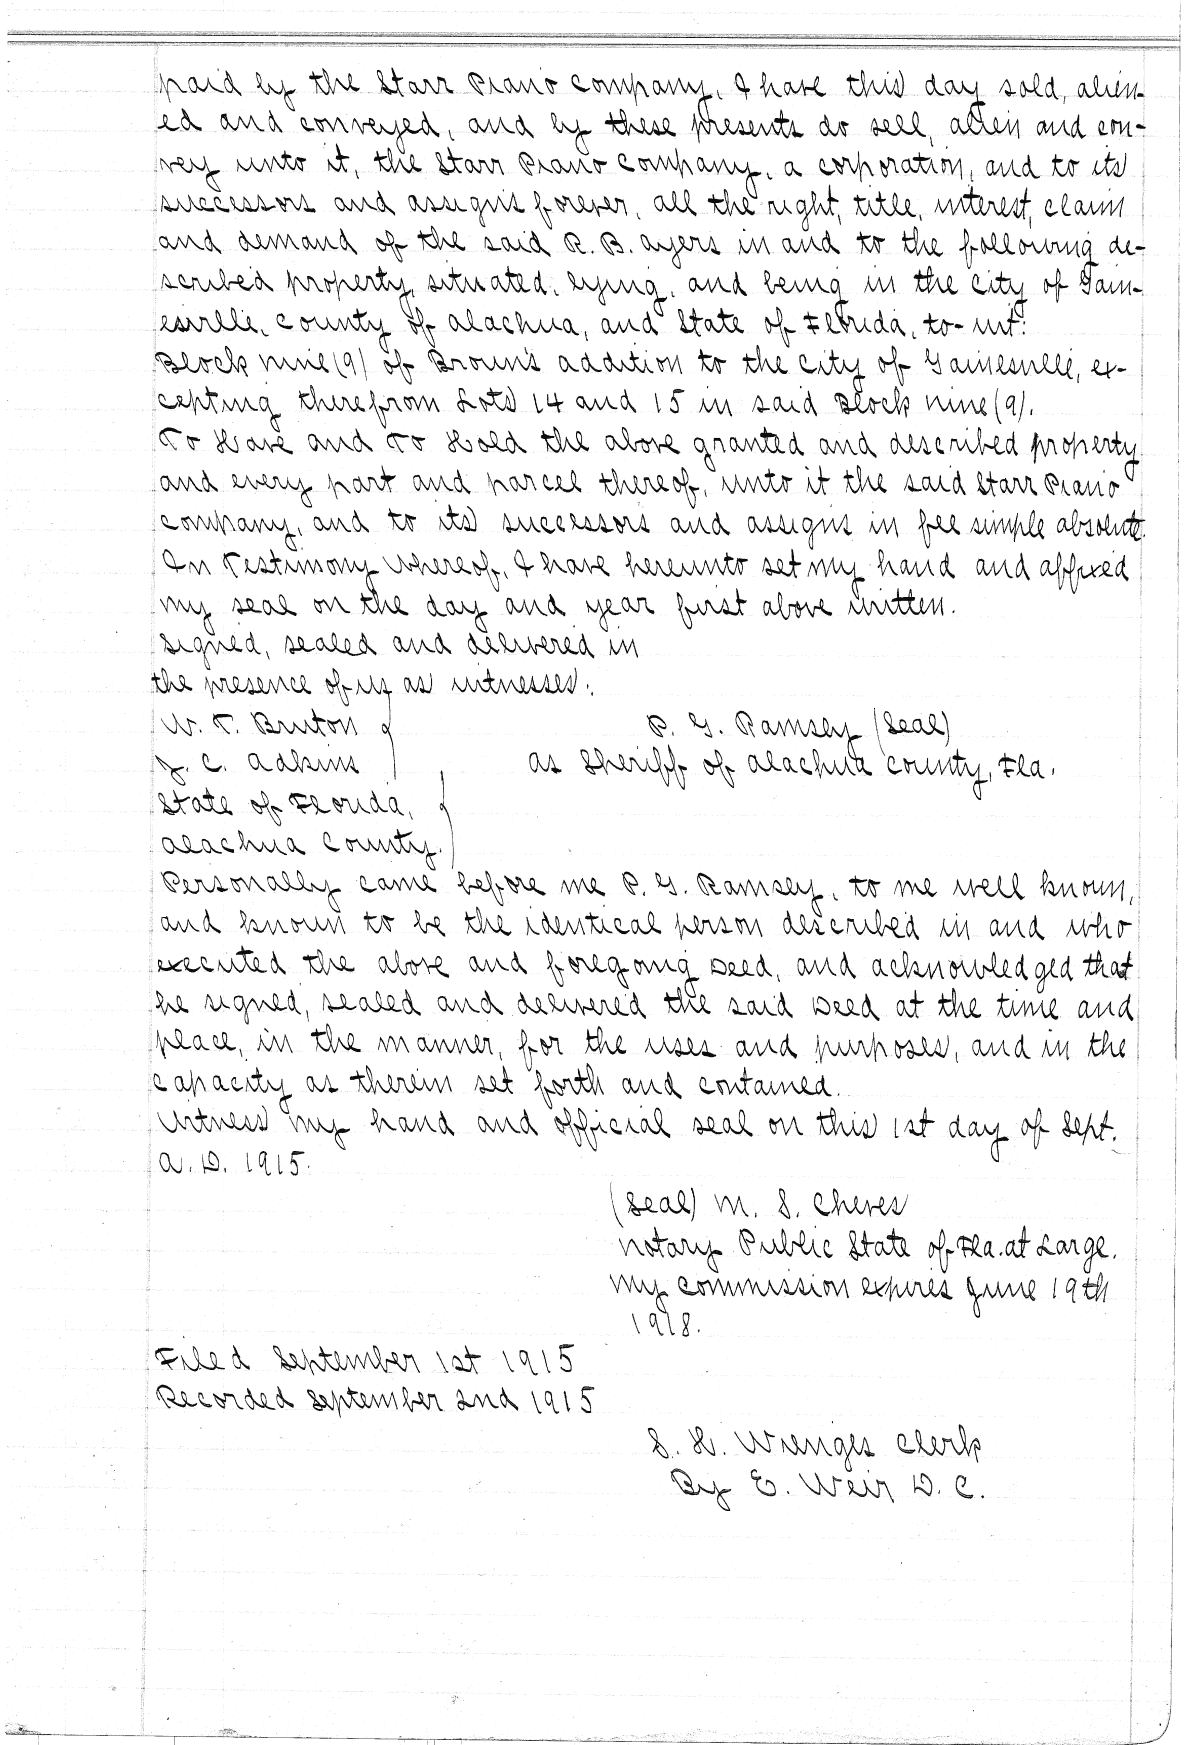 paid by the Starr Piano Company, I have this day sold, alien-
ed and conveyed, and by these presents do sell, alien and con-
vey unto it, the Starr Piano Company, a corporation, and to its
successors and assigns forever, all the right, title, interest, claim
and demand of the said R. B. Ayers in and to the following de-
scribed property, situated, lying, and being in the City of Gain-
esville, County of Alachua, and State of Florida, to-wit:
Block nine (9) of Brown's addition to the City of Gainesville, ex-
cepting therefrom Lots 14 and 15 in said Block nine (9).
To Have and To Hold the above granted and described property
and every part and parcel thereof, unto it the said Starr Piano
Company, and to its successors and assigns in fee simple absolute.
In Testimony Whereof, I have hereunto set my hand and affixed
my seal on the day and year first above written.
Signed, sealed and delivered in
the presence of us as witnesses:
W. T. Bruton
J. C. Adkins
P. G. Ramsey (Seal)
as Sheriff of Alachua County, Fla.
State of Florida,
Alachua County.
Personally came before me P. G. Ramsey, to me well known,
and known to be the identical person described in and who
executed the above and foregoing Deed, and acknowledged that
he signed, sealed and delivered the said Deed at the time and
place, in the manner, for the uses and purposes, and in the
capacity as therein set forth and contained.
Witness my hand and official seal on this 1st day of Sept.
A. D. 1915.
(Seal) M. S. Cheves
Notary Public State of Fla. at Large.
My commission expires June 19th
1918.
Filed September 1st 1915
Recorded September 2nd 1915
S. H. Wienges Clerk
By E. Weir D. C.